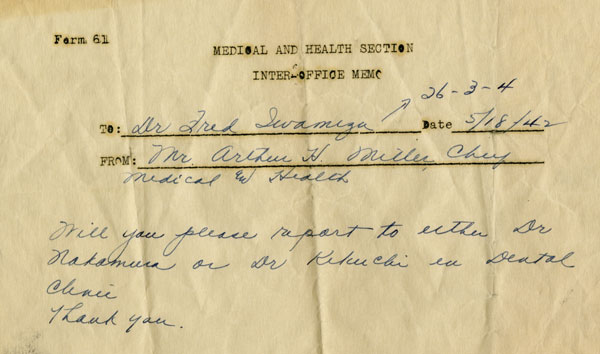 Form 61
MEDICAL AND HEALTH SECTION
INTER-OFFICE MEMO
26-3-4
To: Dr Fred Iwamizu Date 5/18/42
FROM: Mr. Arthur H. Miller, Chief
Medical and Health
Will you please report to either Dr
Nakamura or Dr Kikuchi in Dental
Clinic
Thank you.